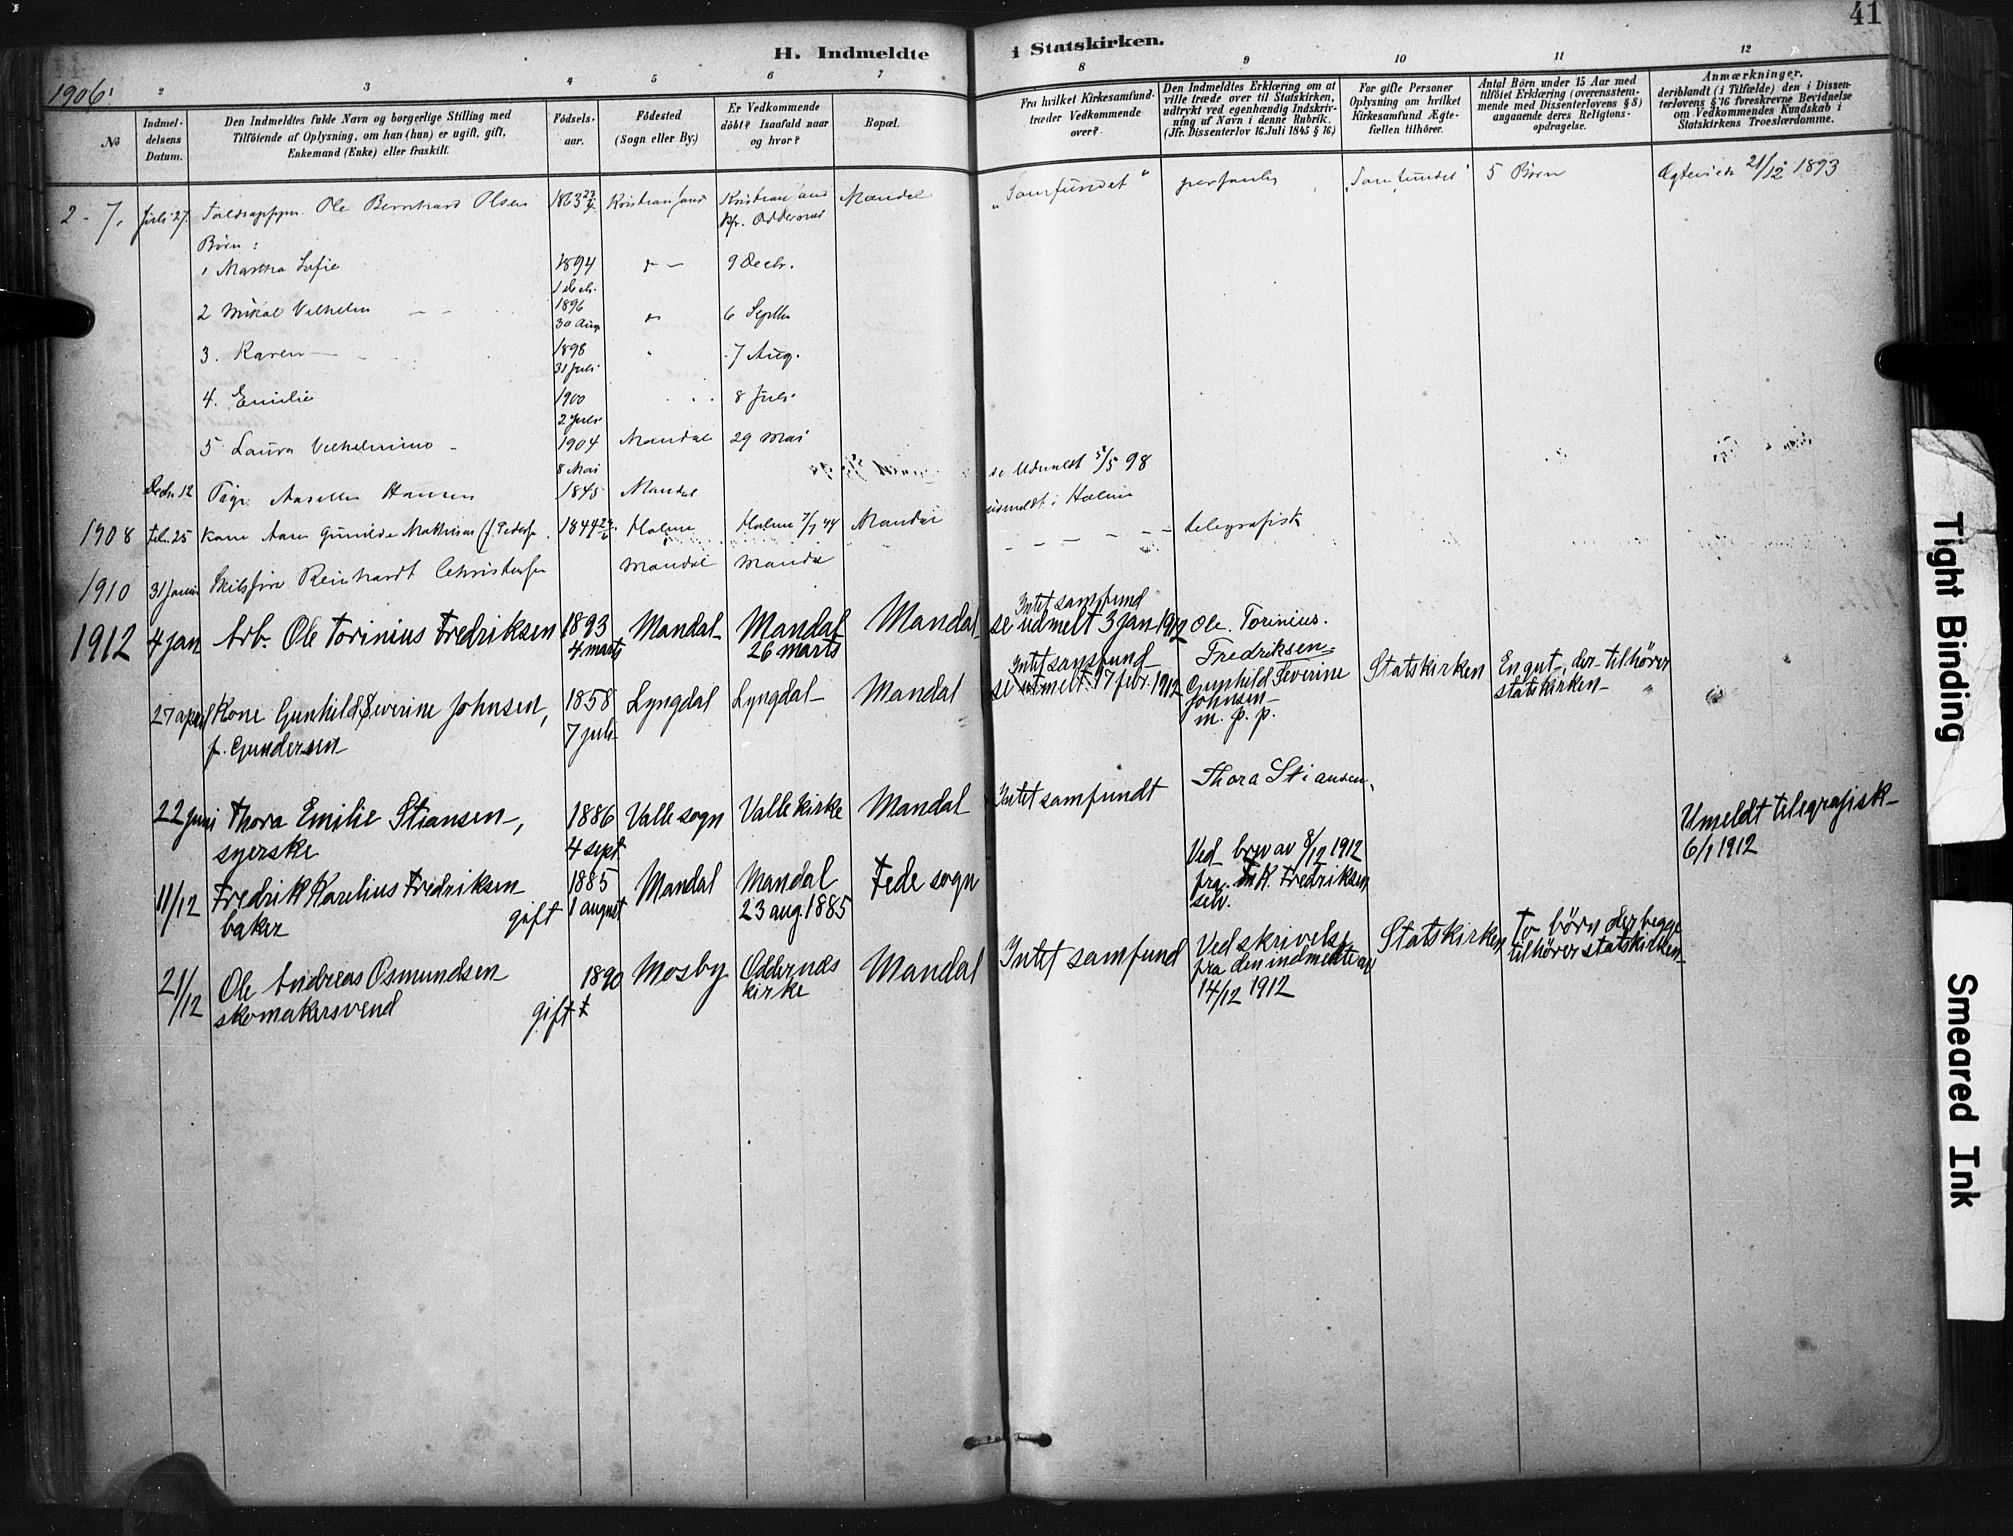 41
H. Indmeldte i Statskirken.
1906
1 2 3 4 5 6 7 8 9 10 11 12
No
Indmel-
delsens
Datum.
Den Indmeldtes fulde Navn og borgerlige Stilling med
Tilföiende af Oplysning, om han (hun) er ugift, gift,
Enkemand (Enke) eller fraskilt.
Födsels-
aar.
Födested
(Sogn eller By.)
Er Vedkommende
döbt? Isaafald naar
og hvor?
Bopæl.
Fra hvilket Kirkesamfund
træder Vedkommende
over?
Den Indmeldtes Erklæring om at
ville træde over til Statskirken,
udtrykt ved egenhændig Indskriv-
ning af Navn i denne Rubrik.
(Jfr. Dissenterlov 16. Juli 1845 § 16)
For gifte Personer
Oplysning om hvilket
Kirkesamfund Ægte-
fællen tilhörer.
Antal Börn under 15 Aar med
tilföiet Erklæring (overensstem-
mende med Dissenterlovens § 8)
angaaende deres Religions-
opdragelse.
Anmærkninger,
deriblandt (i Tilfælde) den i Dissen-
terlovens § 16 foreskrevne Bevidnelse
om Vedkommendes Kundskab i
Statskirkens Troeslærdomme.
2 - 7. Juli 27. Ole Bernhard Olsen 1863 Kristiansand Kristiansand Mandal "Samfundet" personlig "Samfundet" 5 Børn 21/12 1893
Oddernes
Børn:
1 Martha Sofie 1894 9 Decbr.
1 Decbr.
2 Mikal Vilhelm 1896 6 Septbr
30 Aug.
3. Karen 1898 7 Aug.
31 Juli
4. Emilie 1900 8 Juli
2 Juli
5 Laura Vilhelmine 1904 Mandal 29 Mai
8 Mai
Decbr. 12 Hansen 1845 Mandal se Udmeldt 5/5 98
1908 Febr. 25 Kone Gunilde Mathisen 1844 Holme Holme 7/7 44 Mandal udmeldt i Holme
1910 31 Januar Reinhardt Christensen Mandal Mandal telegrafisk
1912 4 jan Arb. Ole Torinius Fredriksen 1893 Mandal Mandal Mandal Intet samfund
4 marts 26 marts se udmelt 3 jan 1912 Ole Torinius.
Fredriksen
27 april Kone Gunhild Severine Johnsen, 1858 Lyngdal Lyngdal Mandal Intet samfund
f. Gundersen 7 juli se utmelt 17 febr. 1912 Gunhild Severine
Johnsen
m. p. p. Statskirken En gut, der tilhører
statskirken
22 juni Thora Emilie Stiansen, 1886 Valle sogn Valle kirke Mandal Intet samfundt Thora Stiansen.
syerske 4 sept
11/12 Fredrik Karelius Fredriksen 1885 Mandal Mandal Fede sogn
baker gift 1 august 23 aug. 1885
Ved brev av 8/12 1912
fra H. Fredriksen
selv.
Umeldt telegrafisk
6/1 1912
21/12 Ole Andreas Osmundsen 1890 Mosby Oddernes
kirke Mandal Intet samfund
skomakersvend gift
Ved skrivelse
fra den indmeldte av
14/12 1912
Statskirken To børn der begge
tilhører statskirken
Tight Binding
Smeared Ink